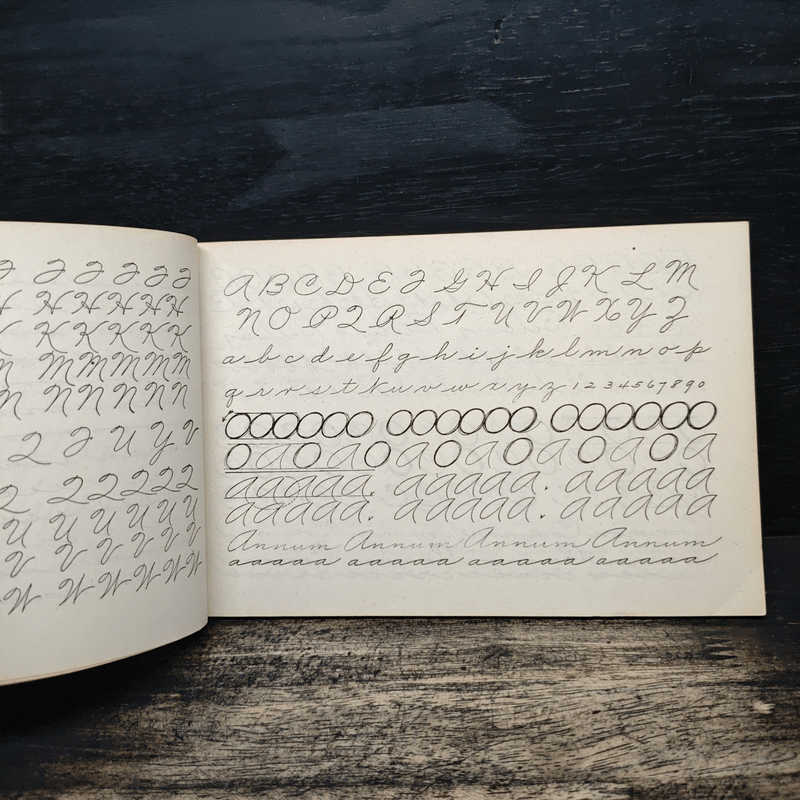 F F F F F F
H H H H H H
K K K K K
M M M M M M
N N N N N N
Q F U Y V
Q Q Q Q Q Q
U U U U U U
V V V V V V
W W W W W W
A B C D E F G H I J K L M
N O P Q R S T U V W X Y Z
a b c d e f g h i j k l m n o p
q r r s t t u v w x y z 1 2 3 4 5 6 7 8 9 0
OOOOOO OOOOOO OOOOOOO
O A A O A O A O A O A O A
AAAAA. AAAAA. AAAAA
AAAAA. AAAAA. AAAAA
Annum Annum Annum Annum
aaaaaa aaaaaa aaaaaa aaaaaa